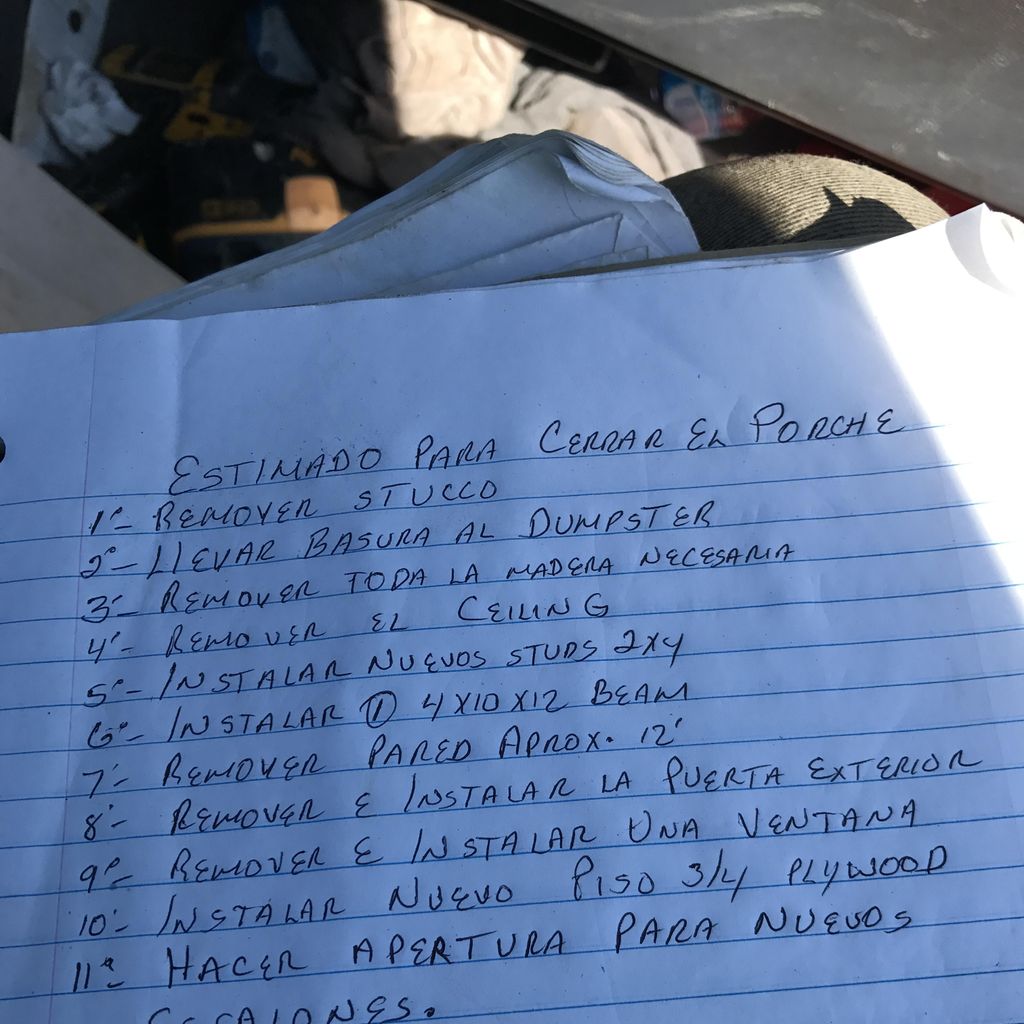 ESTIMADO PARA CERRAR EL PORCHE
1º- REMOVER STUCCO
2º- LLEVAR BASURA AL DUMPSTER
3º- REMOVER TODA LA MADERA NECESARIA
4º- REMOVER EL CEILING
5º- INSTALAR NUEVOS STUDS 2X4
6º- INSTALAR ① 4X10X12 BEAM
7º- REMOVER PARED APROX. 12'
8º- REMOVER E INSTALAR LA PUERTA EXTERIOR
9º- REMOVER E INSTALAR UNA VENTANA
10º- INSTALAR NUEVO PISO 3/4 PLYWOOD
11º- HACER APERTURA PARA NUEVOS
ESCALONES.